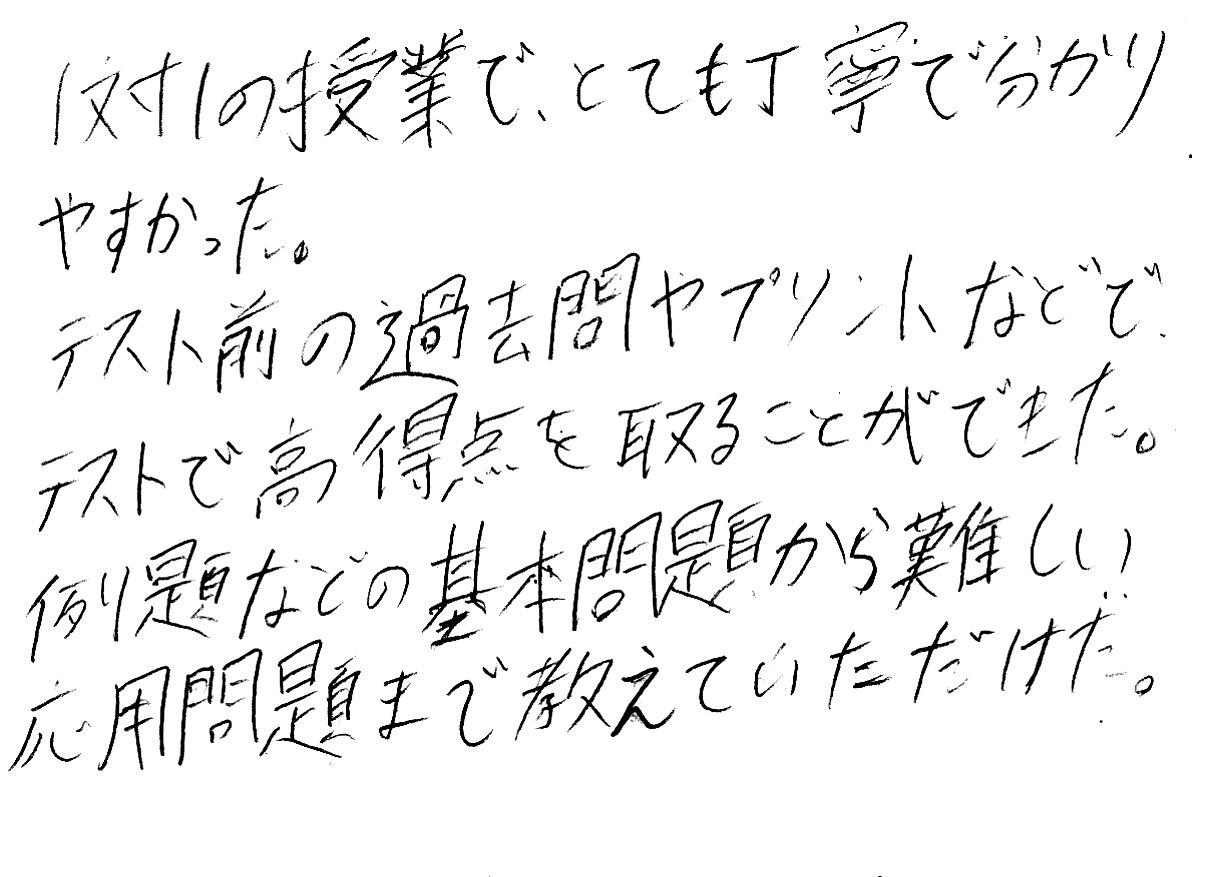 1対1の授業で、とても丁寧で分かり
やすかった。
テスト前の過去問やプリントなどで、
テストで高得点を取ることができた。
例題などの基本問題から難しい
応用問題まで教えていただけた。